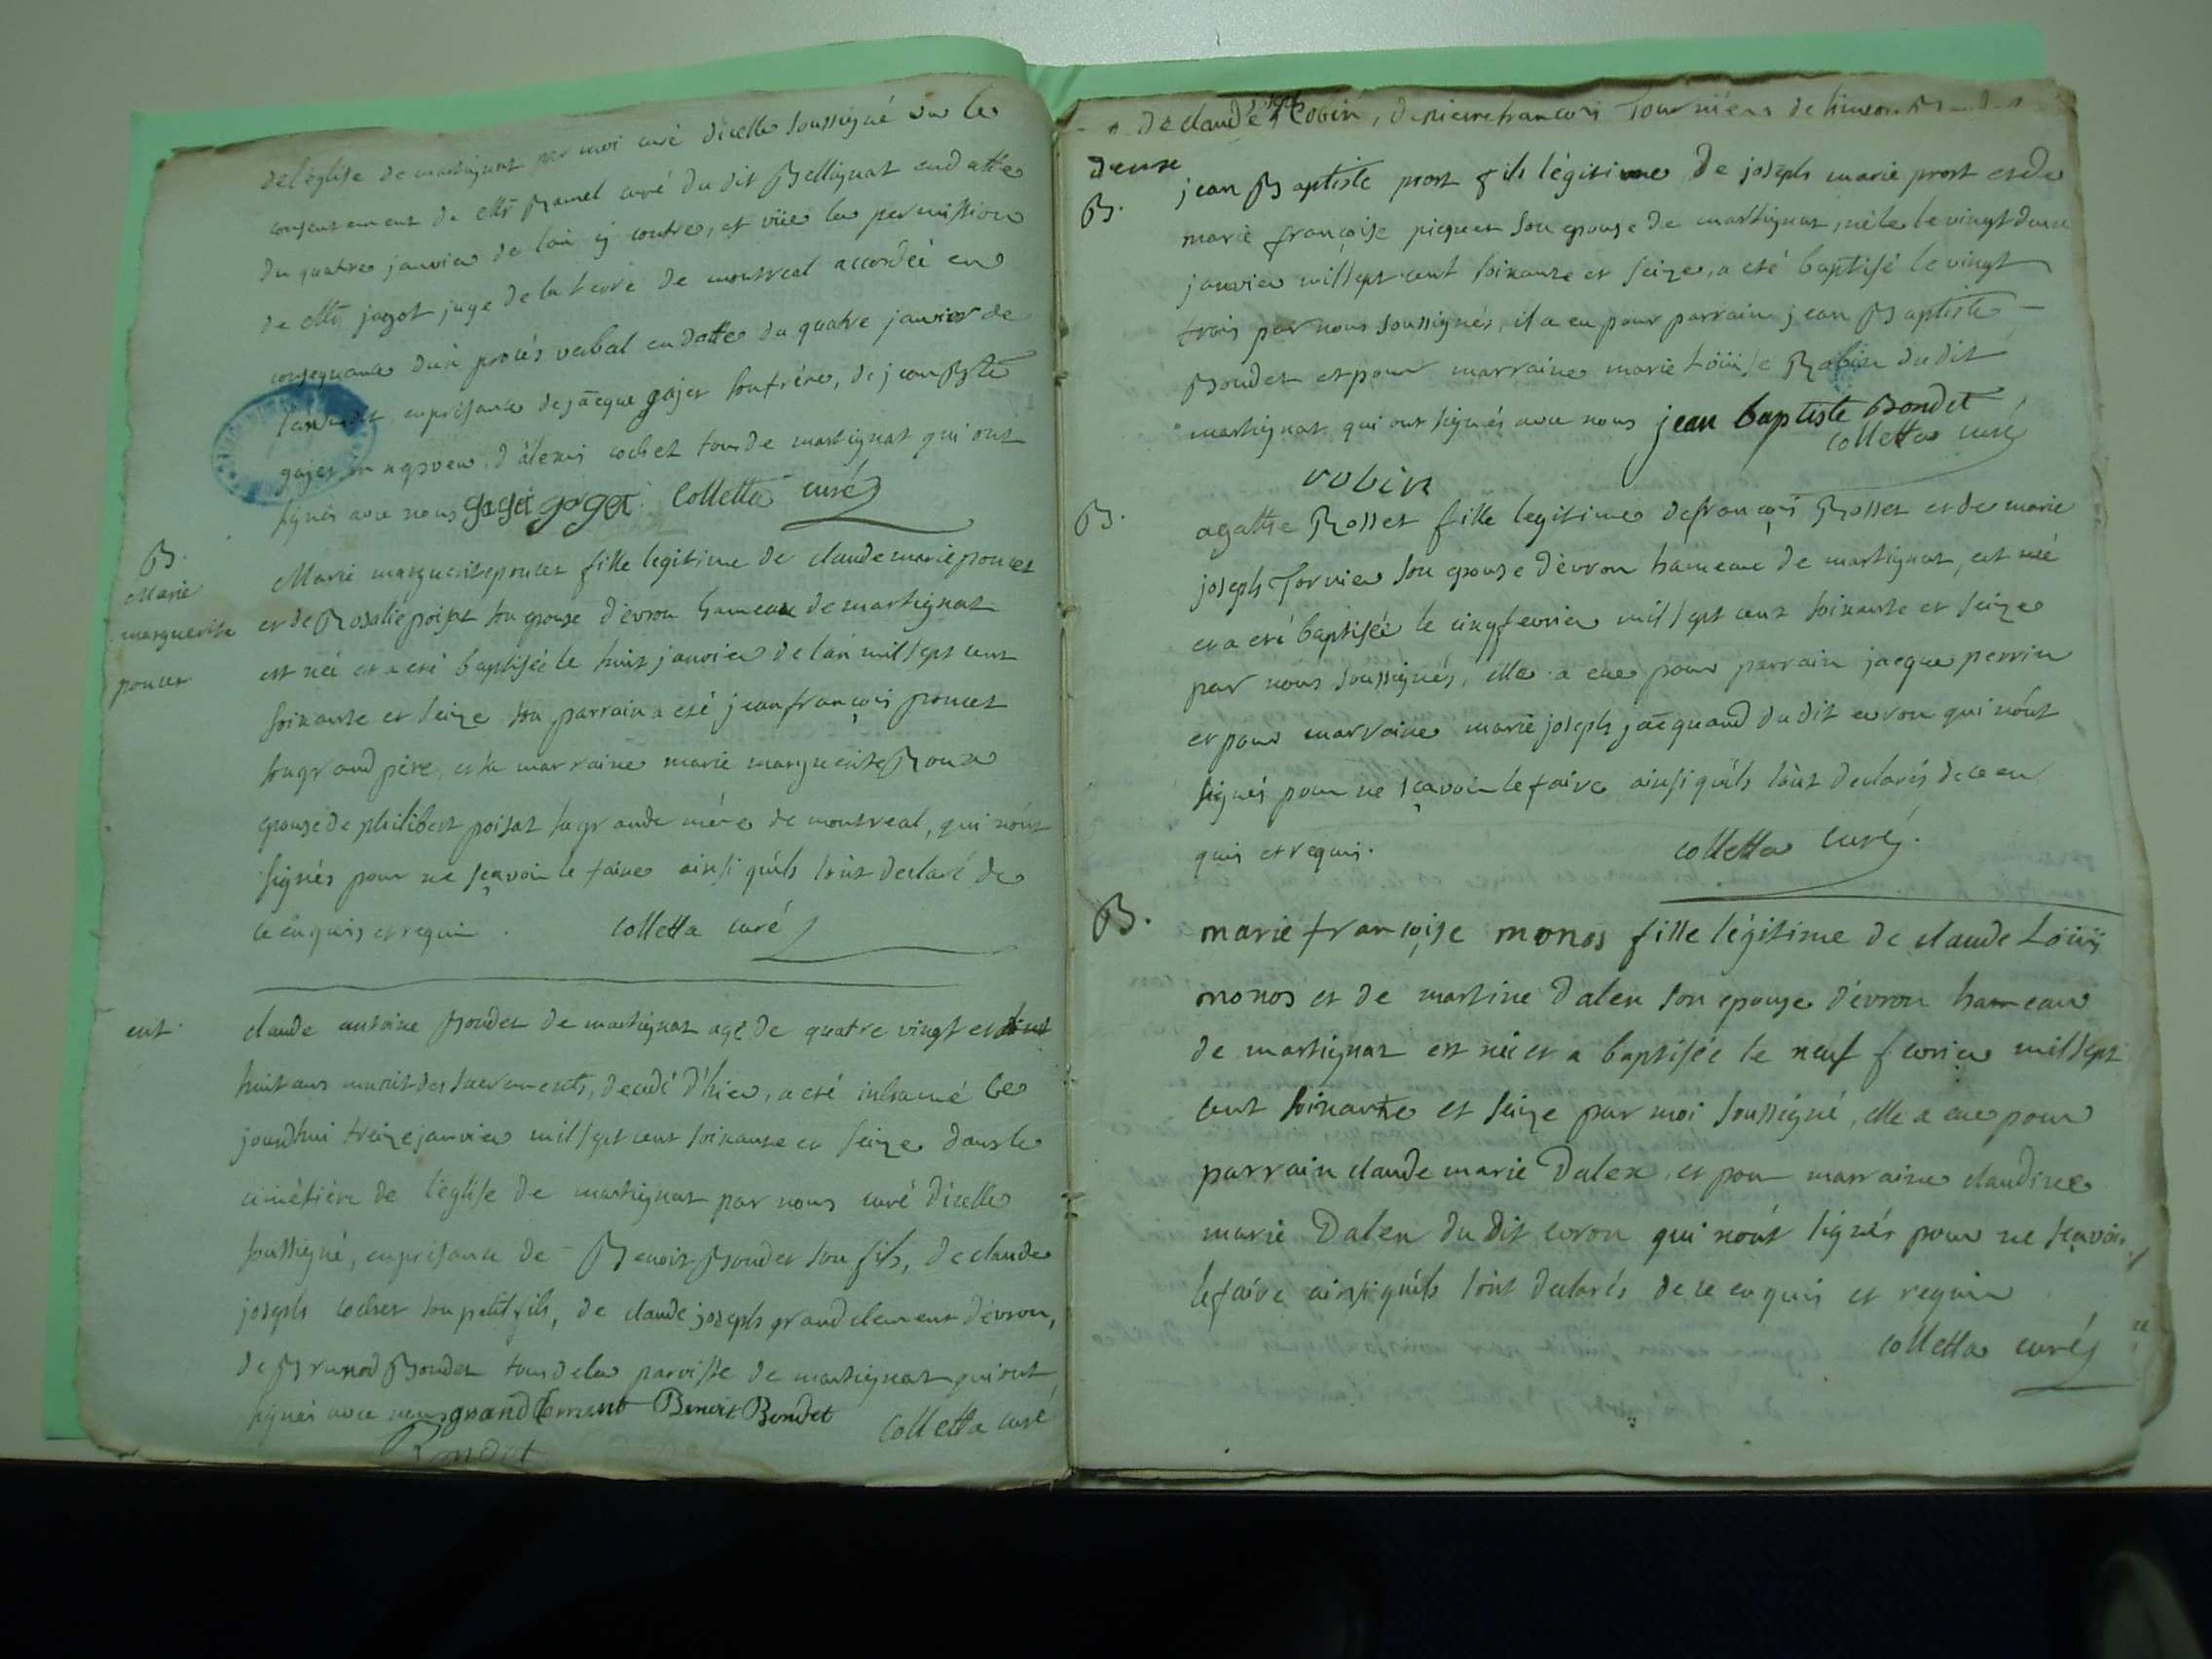 de l'église de martignat par moi curé d'icelle soussigné sur le
consentement de Mr Ramel curé du dit Bellignat en datte
du quatre janvier de l'an cy contre, et vüe la permission
de Mr jagot juge de la terre de montreal accordée en
consequance d'un procés verbal en datte du quatre janvier de
en présance de jācque gajet son frére, de jean Bte
gajet d'alexis cochet tous de martignat qui ont
signés avec nous gaget goget Colletta curé
B.
Marie
marguerite
poncet
Marie marguerite poncet fille legitime de claude marie poncet
et de Rosalie poisat son epouse d'évron hameau de martignat
est née et a eté baptisée le huit janvier de l'an mil sept cent
soixante et seize son parrain a eté jean françois poncet
son grand pére, et sa marraine marie marguerite Roux
epouse de philibert poisat sa grande mére de montreal, qui n'ont
signés pour ne sçavoir le faire ainsi qu'ils l'ont declaré de
ce enquis et requis. Colletta curé
ent.
claude antoine Bondet de martignat agé de quatre vingt et
huit ans munit des sacrements, decedé d'hier, a eté inhumé ce
jourd'hui treize janvier mil sept cent soixante et seize dans le
cimétiére de l'église de martignat par nous curé d'icelle
soussigné, en présance de Benoit Bondet son fils, de claude
joseph cochet son petit fils, de claude joseph grandclement d'évron,
de Brunod Bondet tous de la paroisse de martignat qui ont
signés avec nous grandclement Benoit Bondet Colletta curé
Bondet
de claude joph Robin, de pierre francois Tournier de
deux
B.
jean Baptiste prost fils légitime de joseph marie prost et de
marie françoise piquet son epouse de martignat, né le le vingt deux
janvier mil sept cent soixante et seize, a eté baptisé le vingt
trois par nous soussignés, il a eu pour parrain jean Baptiste
Bondet et pour marraine marie Loüise Robin du dit
martignat qui ont signés avec nous jean baptiste Bondet
Colletta curé
robin
B.
agathe Rosset fille legitime de françois Rosset et de marie
joseph Tornier son epouse d'évron hameau de martignat, est née
et a eté baptisée le cinq fevrier mil sept cent soixante et seize
par nous soussignés, elle a eue pour parrain jacque perrin
et pour marraine marie joseph jācquand du dit evron qui n'ont
signés pour ne sçavoir le faire ainsi qu'ils l'ont declarés de ce en
quis et requis.
colletta curé.
B.
marie françoise monos fille légitime de claude Loüis
monos et de martine Dalex son epouse d'évron hameau
de martignat est née et a baptisée le neuf fevrier mil sept
cent soixante et seize par moi soussigné, elle a eue pour
parrain claude marie Dalex, et pour marraine claudine
marie Dalex du dit evron qui n'ont signés pour ne sçavoir
le faire ainsi qu'ils l'ont declarés de ce enquis et requis
Colletta curé